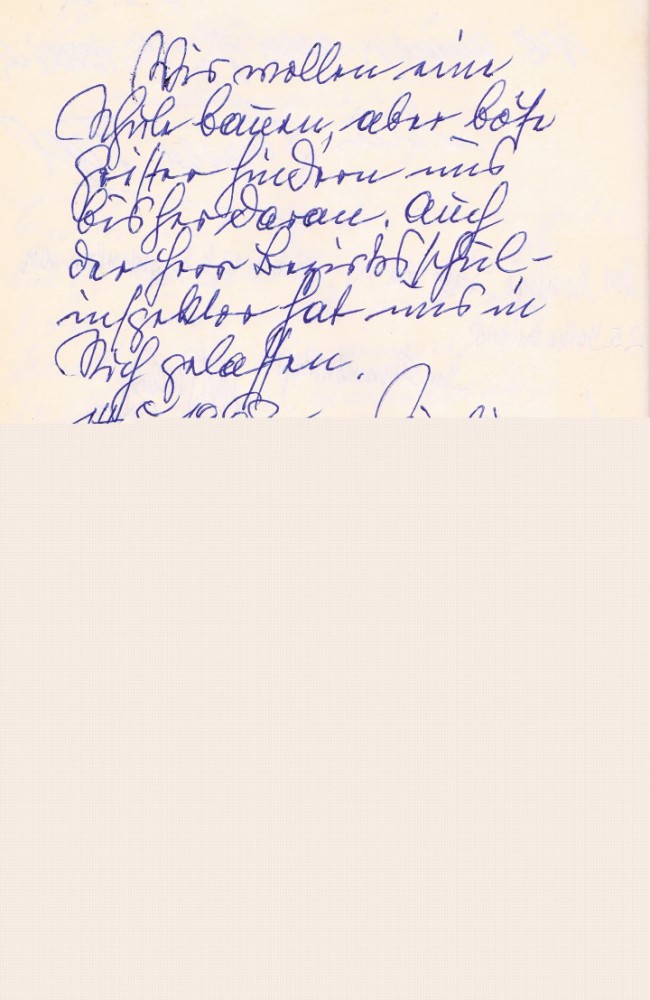 Wir wollen eine
Schule bauen, aber böse
Geister hindern uns
bisher daran. Auch
der Herr Bezirksschul-
inspektor hat uns in
Stich gelassen.